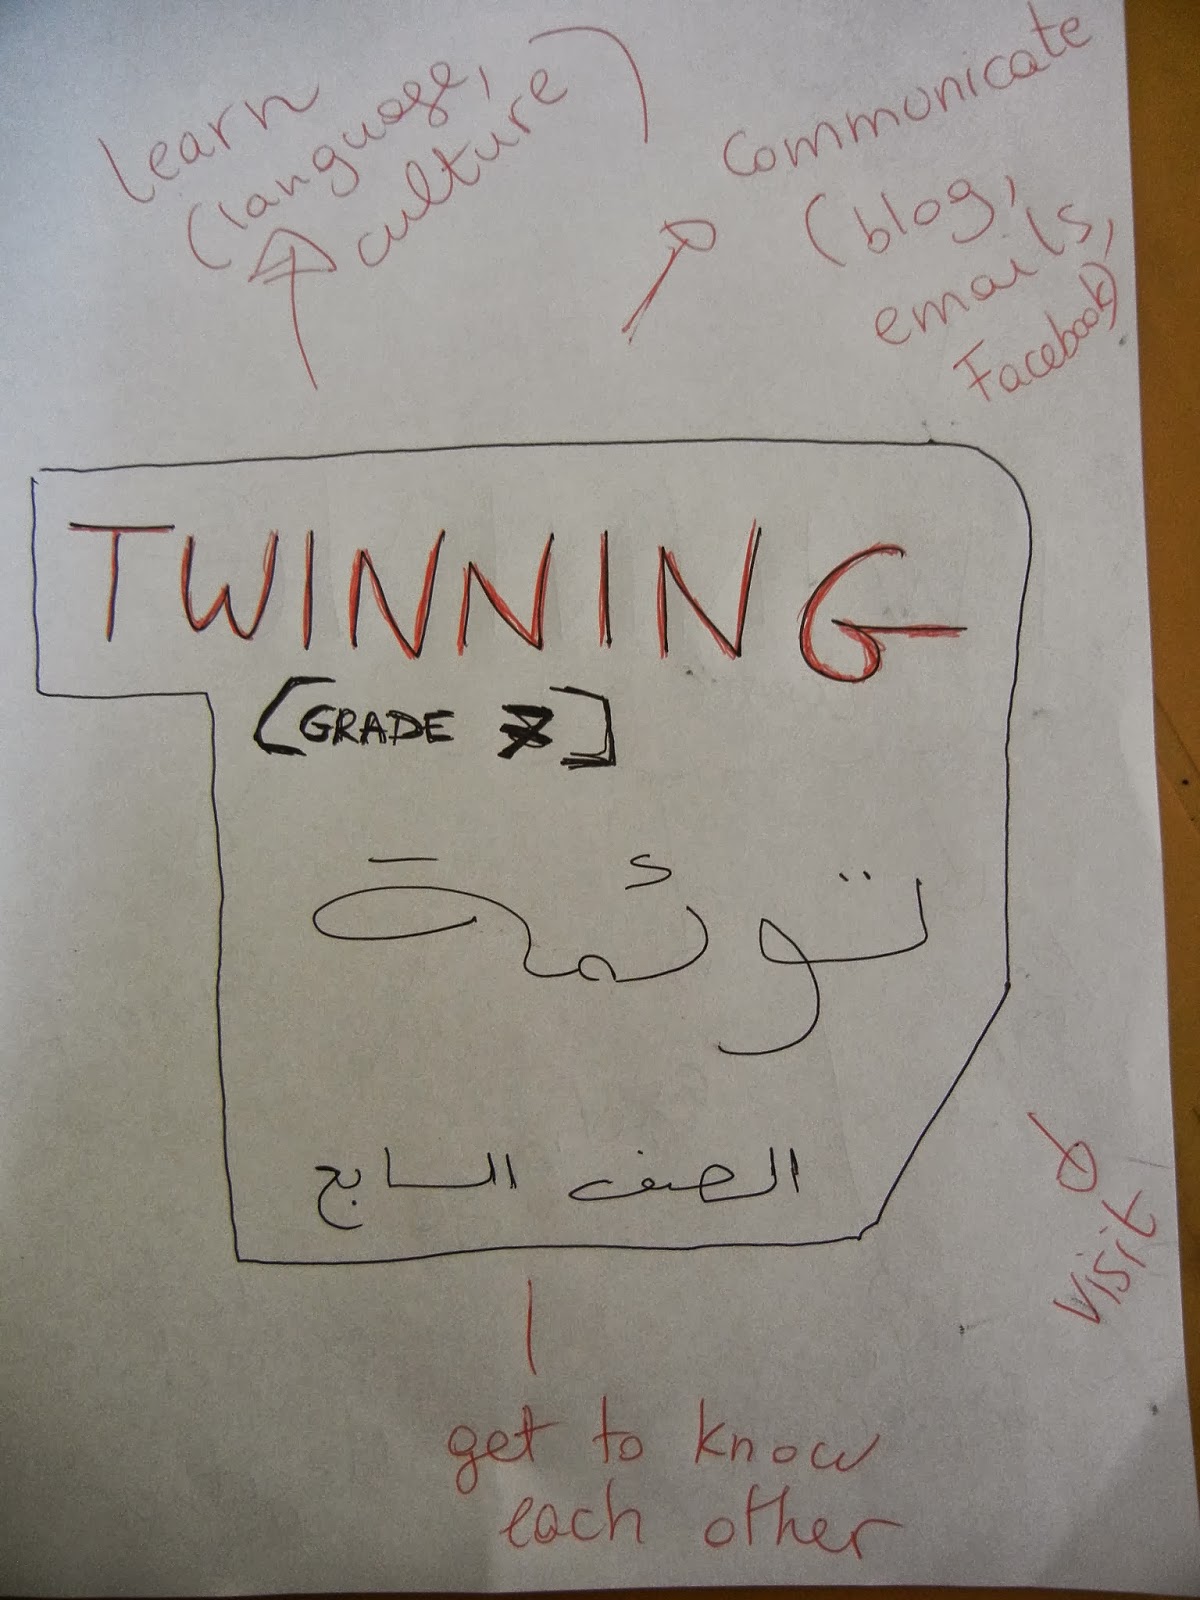 learn
(language,
culture)
Communicate
(blog,
emails,
Facebook)
TWINNING
[GRADE 7]
توئمة
الصف السابع
visit
get to know
each other